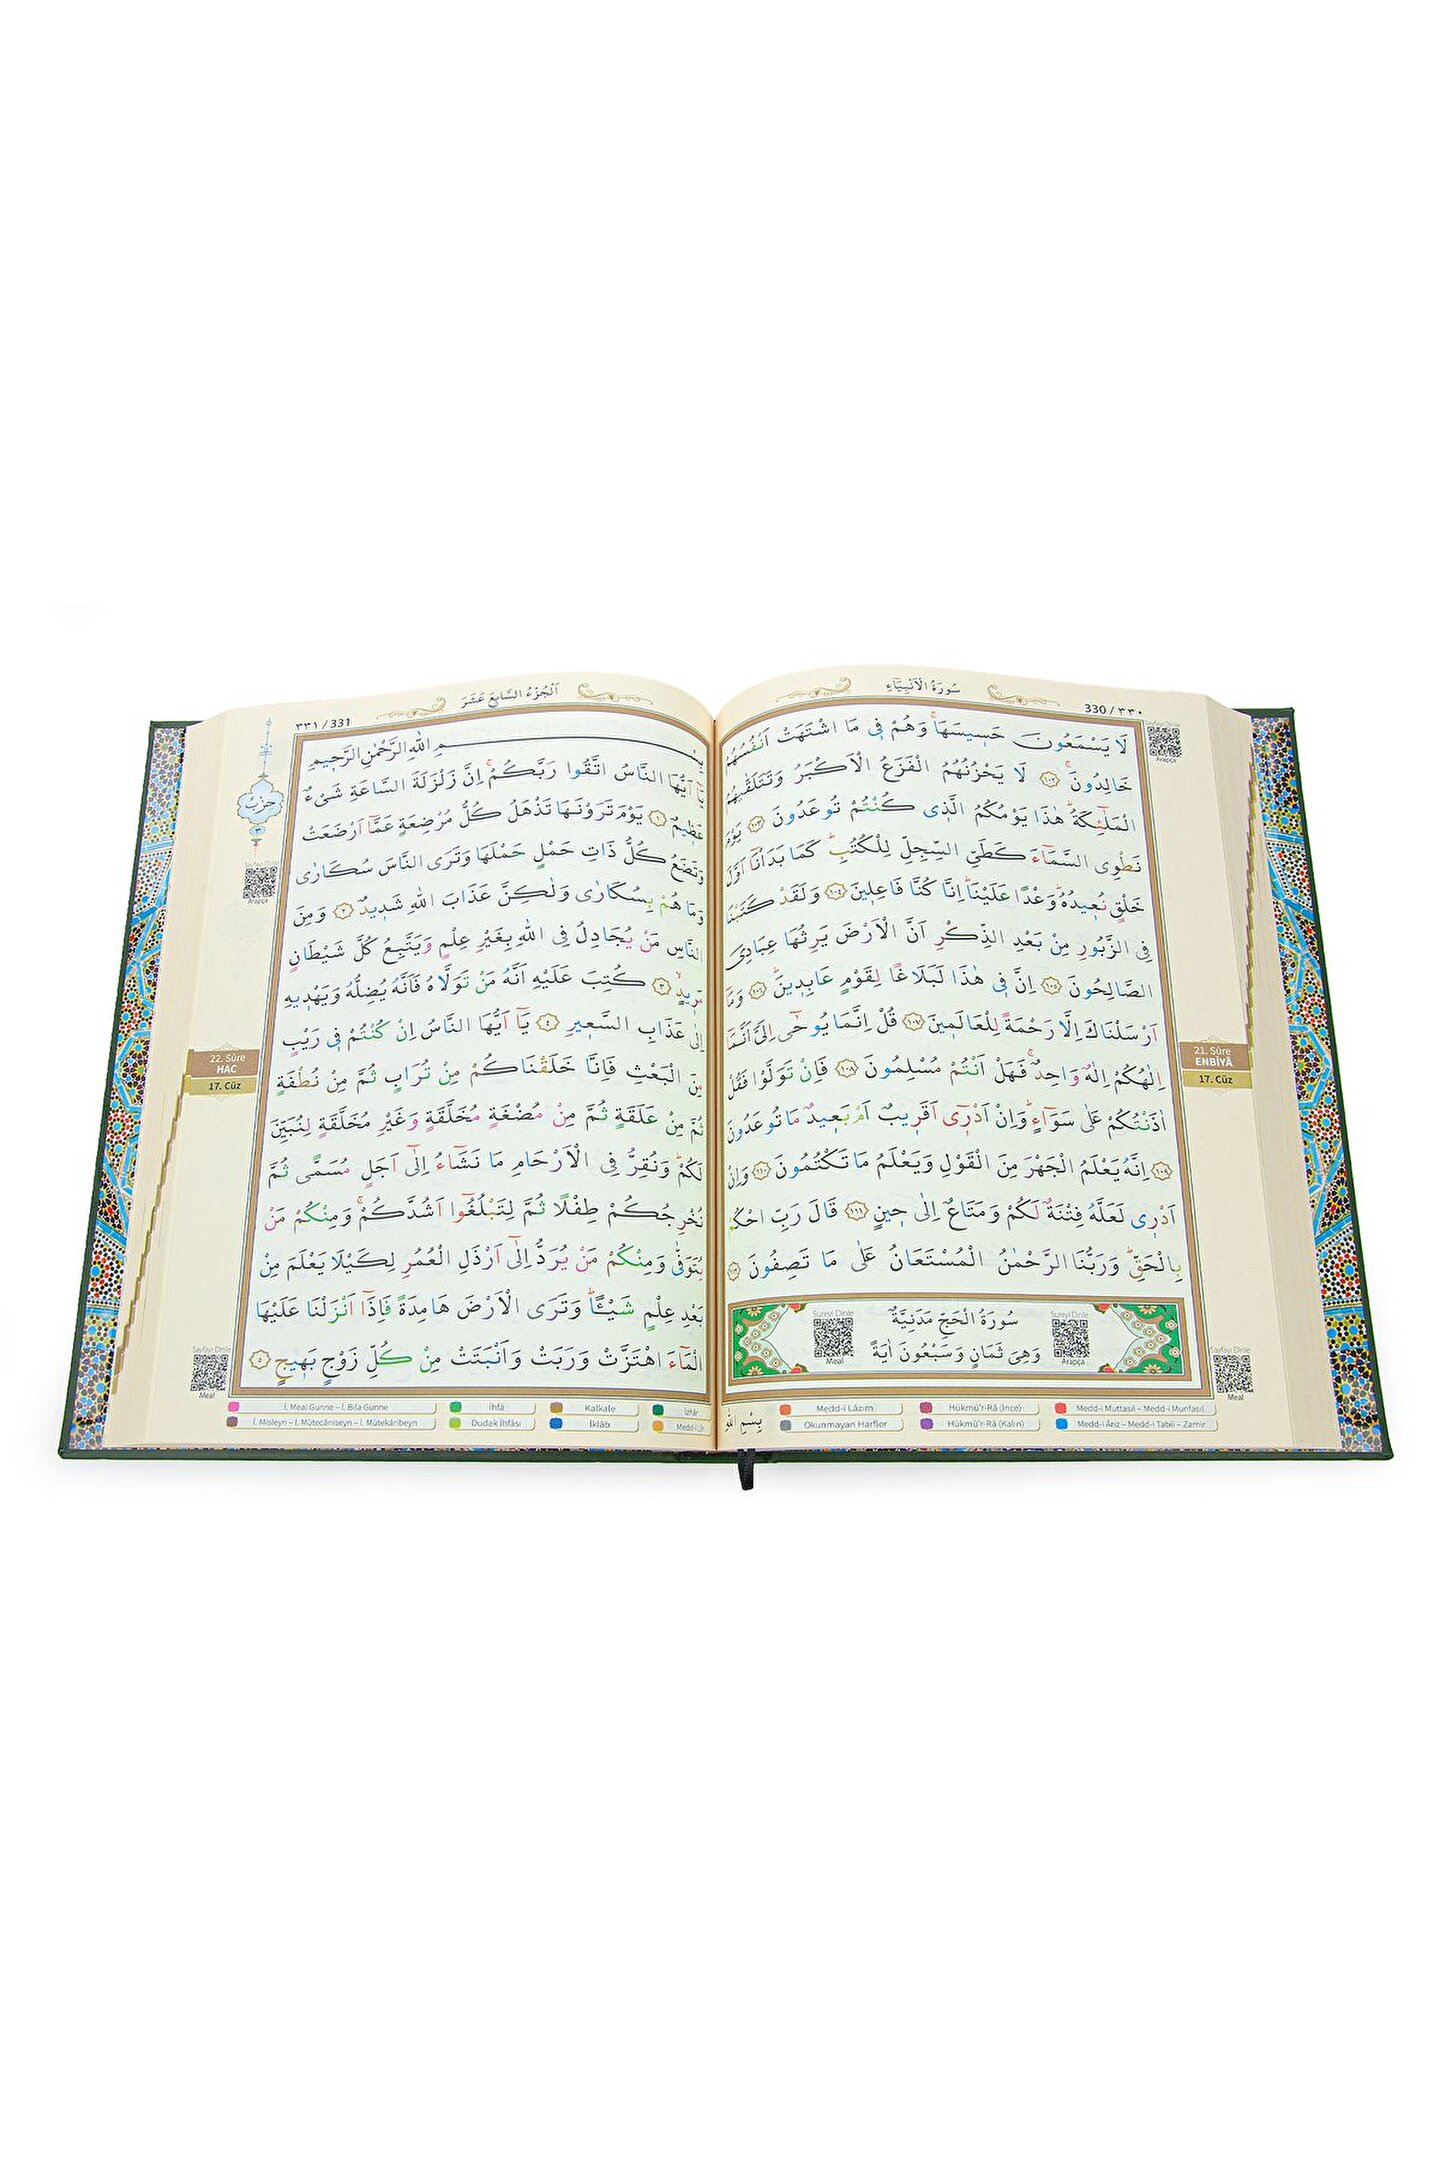 سُورَةُ الْاَنْبِيَٓاءِ
330 / ٣٣٠
لَا يَسْمَعُونَ حَسِيسَهَاۚ وَهُمْ فٖي مَا اشْتَهَتْ اَنْفُسُهُمْ
خَالِدُونَۚ ﴿١٠٢﴾ لَا يَحْزُنُهُمُ الْفَزَعُ الْاَكْبَرُ وَتَتَلَقّٰيهُمُ
الْمَلٰٓئِكَةُۜ هٰذَا يَوْمُكُمُ الَّذٖي كُنْتُمْ تُوعَدُونَ ﴿١٠٣﴾ يَوْمَ
نَطْوِي السَّمَٓاءَ كَطَيِّ السِّجِلِّ لِلْكُتُبِۜ كَمَا بَدَأْنَٓا اَوَّلَ
خَلْقٍ نُعٖيدُهُۜ وَعْدًا عَلَيْنَاۜ اِنَّا كُنَّا فَاعِلٖينَ ﴿١٠٤﴾ وَلَقَدْ كَتَبْنَا
فِي الزَّبُورِ مِنْ بَعْدِ الذِّكْرِ اَنَّ الْاَرْضَ يَرِثُهَا عِبَادِيَ
الصَّالِحُونَ ﴿١٠٥﴾ اِنَّ فٖي هٰذَا لَبَلَاغًا لِقَوْمٍ عَابِدٖينَۜ ﴿١٠٦﴾ وَمَٓا
اَرْسَلْنَاكَ اِلَّا رَحْمَةً لِلْعَالَمٖينَ ﴿١٠٧﴾ قُلْ اِنَّمَا يُوحٰٓى اِلَيَّ اَنَّمَٓا
اِلٰهُكُمْ اِلٰهٌ وَاحِدٌۚ فَهَلْ اَنْتُمْ مُسْلِمُونَ ﴿١٠٨﴾ فَاِنْ تَوَلَّوْا فَقُلْ
اٰذَنْتُكُمْ عَلٰى سَوَٓاءٍۜ وَاِنْ اَدْرٖٓي اَقَرٖيبٌ اَمْ بَعٖيدٌ مَا تُوعَدُونَ
﴿١٠٩﴾ اِنَّهُ يَعْلَمُ الْجَهْرَ مِنَ الْقَوْلِ وَيَعْلَمُ مَا تَكْتُمُونَ ﴿١١٠﴾ وَاِنْ
اَدْرٖي لَعَلَّهُ فِتْنَةٌ لَكُمْ وَمَتَاعٌ اِلٰى حٖينٍ ﴿١١١﴾ قَالَ رَبِّ احْكُمْ
بِالْحَقِّۜ وَرَبُّنَا الرَّحْمٰنُ الْمُسْتَعَانُ عَلٰى مَا تَصِفُونَ ﴿١١٢﴾
سُورَةُ الْحَجِّ مَدَنِيَّةٌ
وَهِيَ ثَمَانٍ وَسَبْعُونَ اٰيَةً
Sureyi Dinle
Meal
Sureyi Dinle
Arapça
Sayfayı Dinle
Arapça
21. Sûre
ENBİYÂ
17. Cüz
Sayfayı Dinle
Meal
Medd-i Lâzım
Hükmü'r-Râ (İnce)
Medd-i Muttasıl – Medd-i Munfasıl
Okunmayan Harfler
Hükmü'r-Râ (Kalın)
Medd-i Ârız – Medd-i Tabiî – Zamir
بِسْمِ اللّٰهِ
اَلْجُزْءُ السَّابِعَ عَشَرَ
٣٣١ / 331
بِسْمِ اللّٰهِ الرَّحْمٰنِ الرَّحٖيمِ
يَٓا اَيُّهَا النَّاسُ اتَّقُوا رَبَّكُمْۚ اِنَّ زَلْزَلَةَ السَّاعَةِ شَيْءٌ
عَظٖيمٌ ﴿١﴾ يَوْمَ تَرَوْنَهَا تَذْهَلُ كُلُّ مُرْضِعَةٍ عَمَّٓا اَرْضَعَتْ
وَتَضَعُ كُلُّ ذَاتِ حَمْلٍ حَمْلَهَا وَتَرَى النَّاسَ سُكَارٰى
وَمَا هُمْ بِسُكَارٰى وَلٰكِنَّ عَذَابَ اللّٰهِ شَدٖيدٌ ﴿٢﴾ وَمِنَ
النَّاسِ مَنْ يُجَادِلُ فِي اللّٰهِ بِغَيْرِ عِلْمٍ وَيَتَّبِعُ كُلَّ شَيْطَانٍ
مَرٖيدٍۙ ﴿٣﴾ كُتِبَ عَلَيْهِ اَنَّهُ مَنْ تَوَلَّاهُ فَاَنَّهُ يُضِلُّهُ وَيَهْدٖيهِ
اِلٰى عَذَابِ السَّعٖيرِ ﴿٤﴾ يَٓا اَيُّهَا النَّاسُ اِنْ كُنْتُمْ فٖي رَيْبٍ
مِنَ الْبَعْثِ فَاِنَّا خَلَقْنَاكُمْ مِنْ تُرَابٍ ثُمَّ مِنْ نُطْفَةٍ
ثُمَّ مِنْ عَلَقَةٍ ثُمَّ مِنْ مُضْغَةٍ مُخَلَّقَةٍ وَغَيْرِ مُخَلَّقَةٍ لِنُبَيِّنَ
لَكُمْۜ وَنُقِرُّ فِي الْاَرْحَامِ مَا نَشَٓاءُ اِلٰٓى اَجَلٍ مُسَمًّى ثُمَّ
نُخْرِجُكُمْ طِفْلًا ثُمَّ لِتَبْلُغُٓوا اَشُدَّكُمْۚ وَمِنْكُمْ مَنْ
يُتَوَفّٰى وَمِنْكُمْ مَنْ يُرَدُّ اِلٰٓى اَرْذَلِ الْعُمُرِ لِكَيْلَا يَعْلَمَ مِنْ
بَعْدِ عِلْمٍ شَيْـًٔاۜ وَتَرَى الْاَرْضَ هَامِدَةً فَاِذَٓا اَنْزَلْنَا عَلَيْهَا
الْمَٓاءَ اهْتَزَّتْ وَرَبَتْ وَاَنْبَتَتْ مِنْ كُلِّ زَوْجٍ بَهٖيجٍ ﴿٥﴾
حِزْبٌ
Sayfayı Dinle
Arapça
22. Sûre
HAC
17. Cüz
Sayfayı Dinle
Meal
İ. Meal Gunne – İ. Bila Gunne
İhfâ
Kalkale
İzhâr
İ. Misleyn – İ. Mütecâniseyn – İ. Mütekâribeyn
Dudak İhfâsı
İklâb
Medd-i Lîn